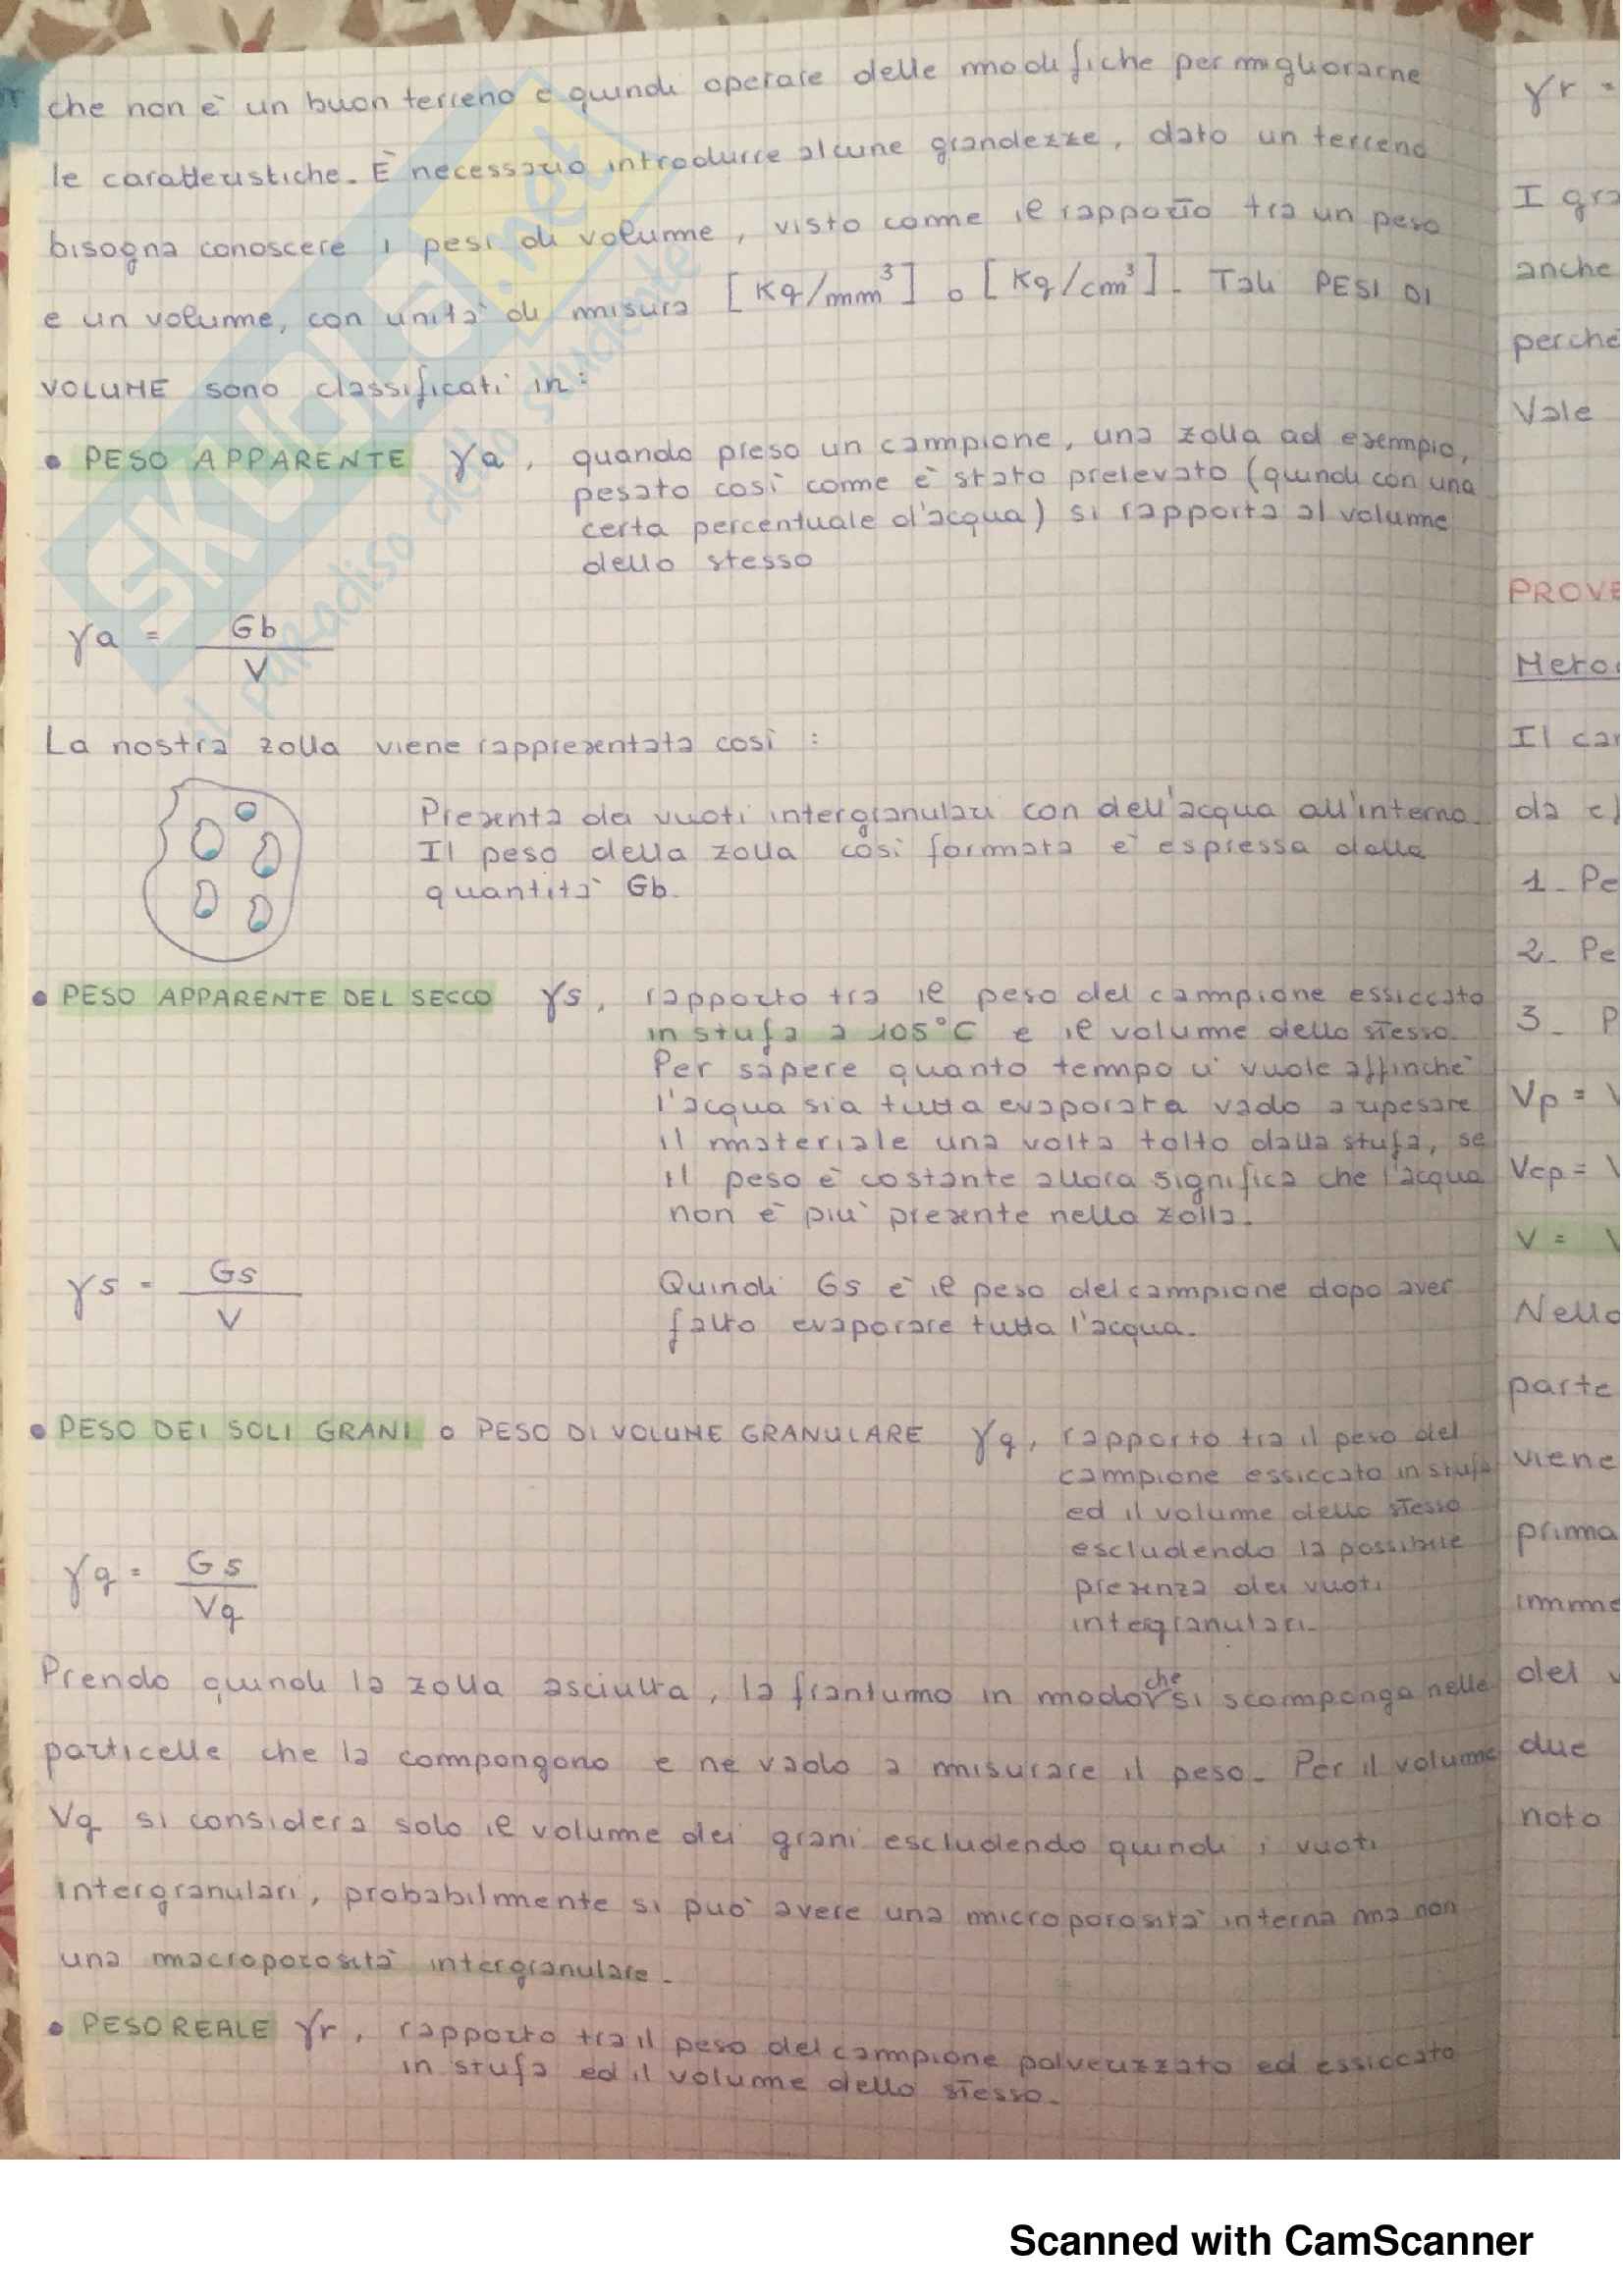 che non è un buon terreno e quindi operare delle modifiche per migliorarne
le caratteristiche. È necessario introdurre alcune grandezze, dato un terreno
bisogna conoscere i pesi di volume, visto come il rapporto tra un peso
e un volume, con unità di misura [Kg/mm³] o [Kg/cm³]. Tali PESI DI
VOLUME sono classificati in:
• PESO APPARENTE γa, quando preso un campione, una zolla ad esempio,
pesato così come è stato prelevato (quindi con una
certa percentuale d'acqua) si rapporta al volume
dello stesso
γa = Gb / V
La nostra zolla viene rappresentata così:
Presenta dei vuoti intergranulari con dell'acqua all'interno.
Il peso della zolla così formata è espressa dalla
quantità Gb.
• PESO APPARENTE DEL SECCO γs, rapporto tra il peso del campione essiccato
in stufa a 105°C e il volume dello stesso.
Per sapere quanto tempo ci vuole affinchè
l'acqua sia tutta evaporata vado a ripesare
il materiale una volta tolto dalla stufa, se
il peso è costante allora significa che l'acqua
non è più presente nella zolla.
γs = Gs / V
Quindi Gs è il peso del campione dopo aver
fatto evaporare tutta l'acqua.
• PESO DEI SOLI GRANI o PESO DI VOLUME GRANULARE γg, rapporto tra il peso del
campione essiccato in stufa
ed il volume dello stesso
escludendo la possibile
presenza dei vuoti
intergranulari.
γg = Gs / Vg
Prendo quindi la zolla asciutta, la frantumo in modo che si scomponga nelle
particelle che la compongono e ne vado a misurare il peso. Per il volume
Vg si considera solo il volume dei grani escludendo quindi i vuoti
intergranulari, probabilmente si può avere una microporosità interna ma non
una macroporosità intergranulare.
• PESO REALE γr, rapporto tra il peso del campione polverizzato ed essiccato
in stufa ed il volume dello stesso.
γr =
I gra
anche
perche
Vale
PROVE
Metod
Il car
da e
1. Pe
2. Pe
3. P
Vp =
Vcp =
V =
Nello
parte
viene
prima
imme
del v
due
noto
SKUOLA.net
il paradiso dello studente
Scanned with CamScanner